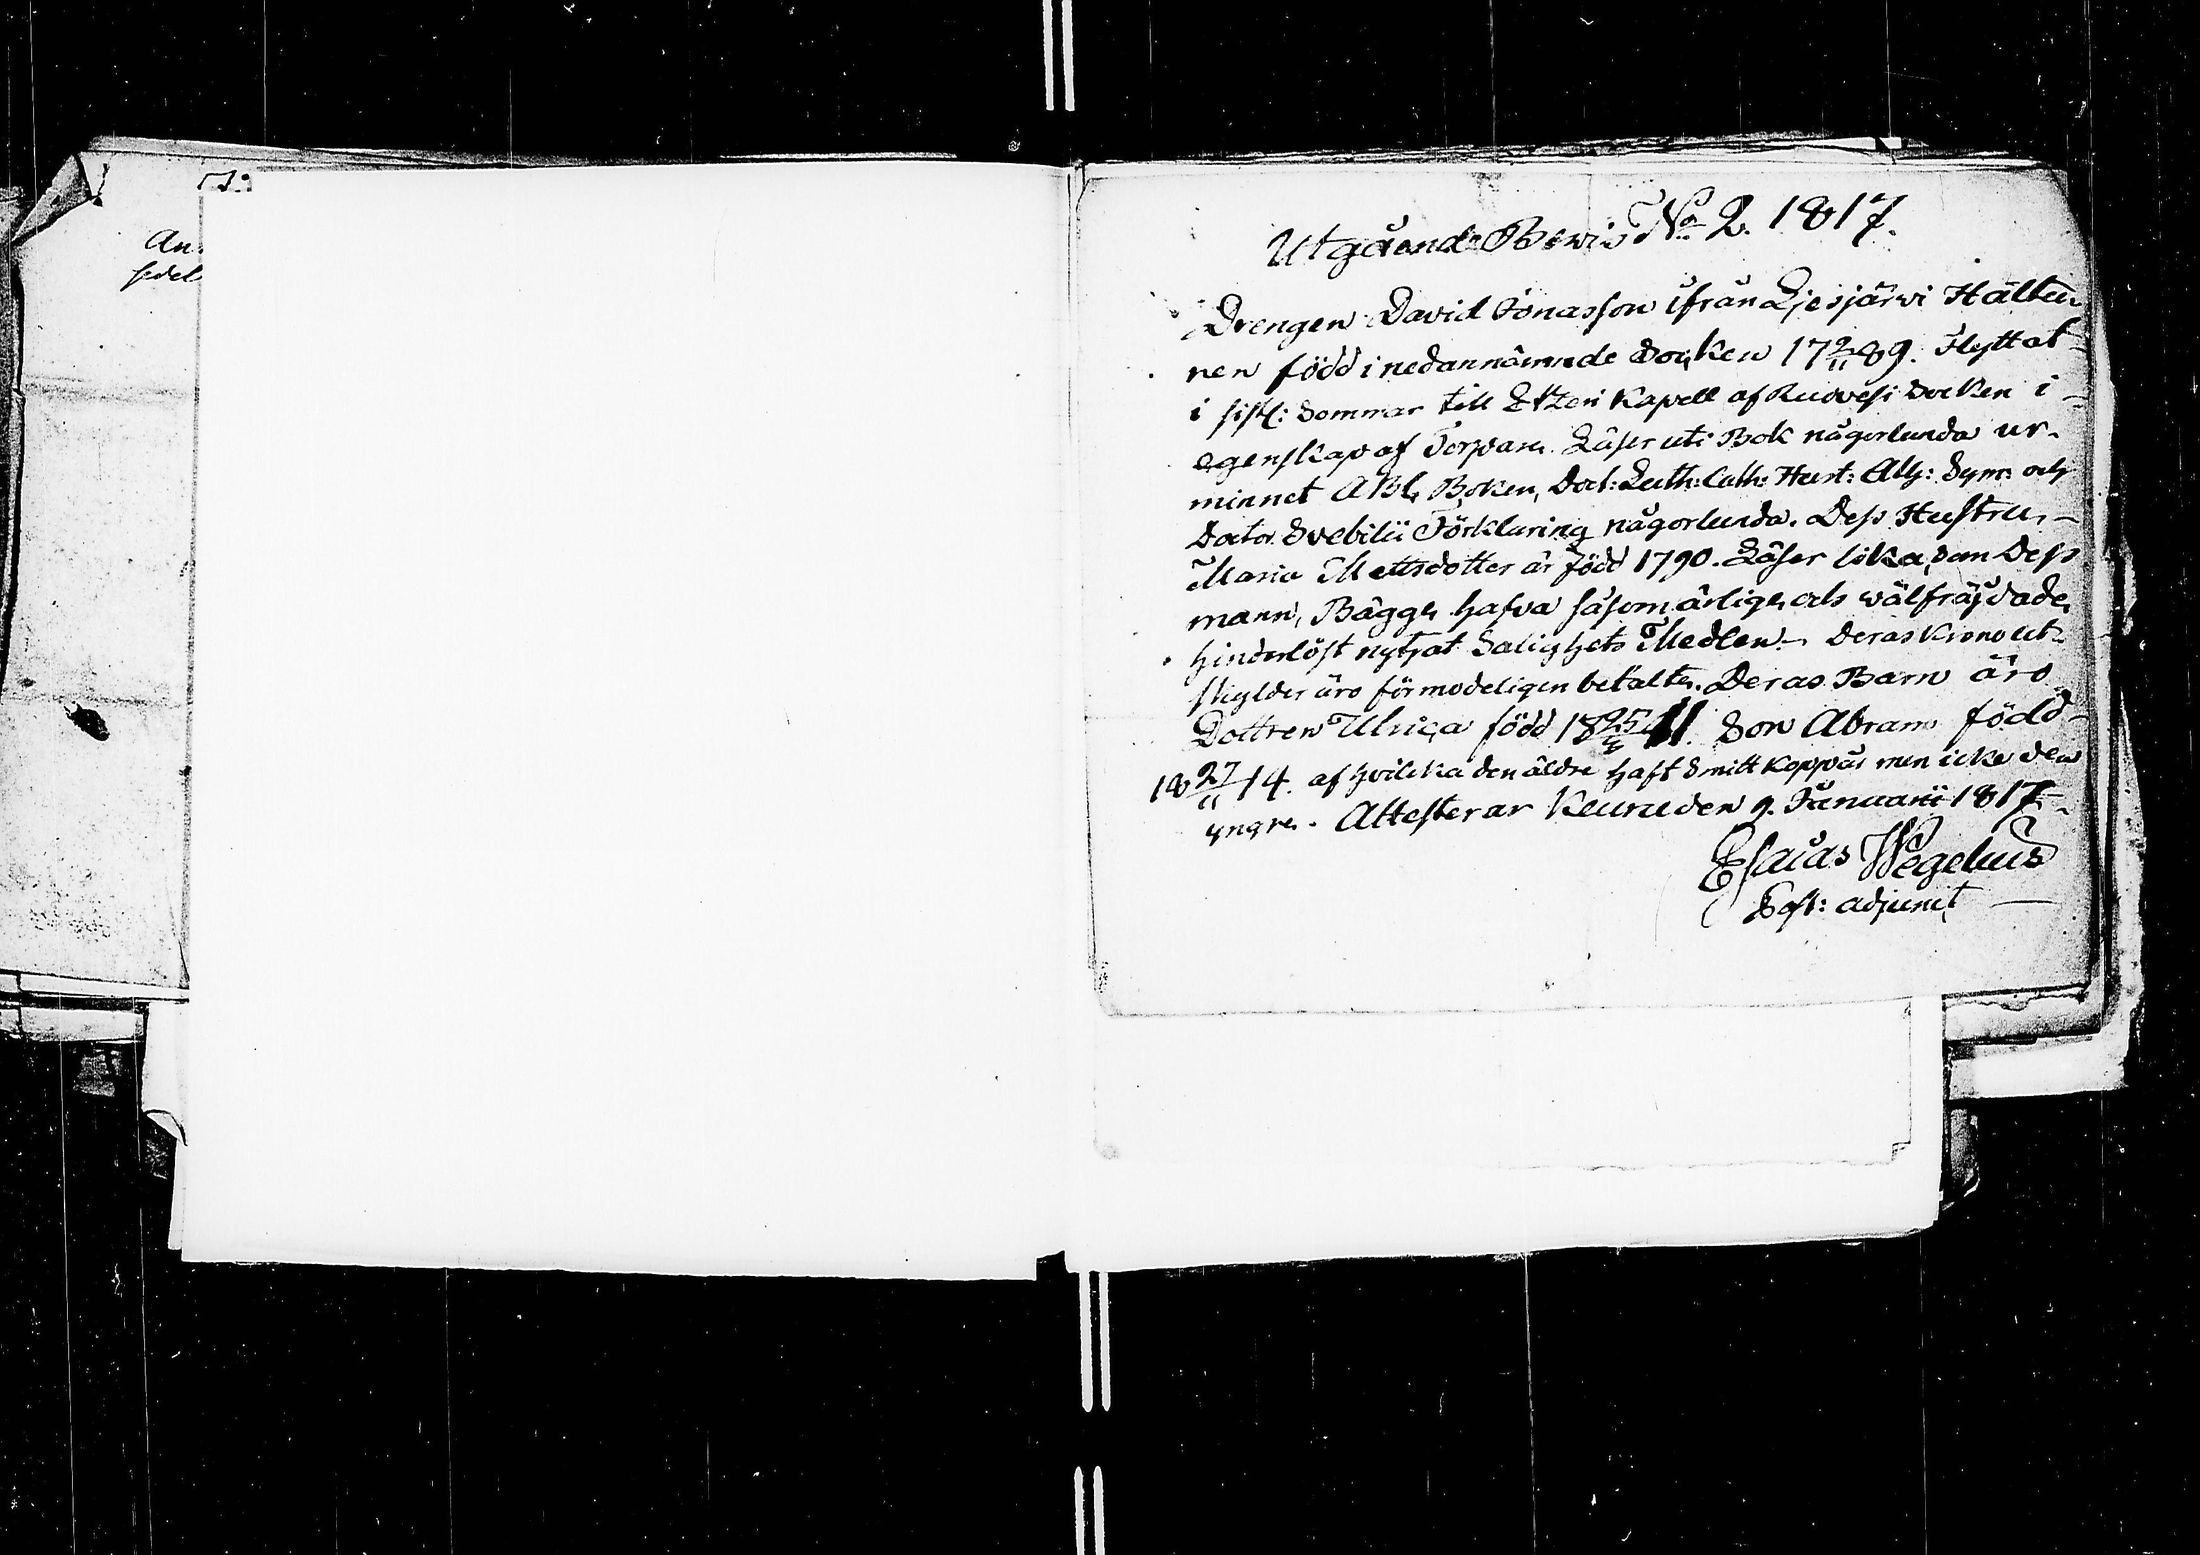 An
sedel
Utgående Bewis No 2. 1817.
Drengen David Jonasson ifrån Liesjärvi Hälten
nen född i nedannämnde Socken 17 2/11 89. Flyttat
i sistl: Sommar till Etzeri Kapell af Ruovesi Socken i
egenskap af Torpare. Läser uti Bok någorlunda ur
minnet ABC Boken, Doct: Luth: Cath: Hust: Ath: Sym: och
Doctor Svebilii Förklaring någorlunda. Dess Hustru
Maria Mattsdotter är född 1790. Läser lika som Dess
mann, Bägge hafva såsom ärlige och wälfräjdade
hinderlöst nyttjat Salighets Medlen. Deras Krono ut-
skylder äro förmodeligen betalte. Deras Barn äro
Dottren Ulrica född 18 25/ 11. Son Abram född
18 27/11 14. af hvilcka den äldre haft Smitt koppår men icke den
yngre. Attesterar Keuru den 9. Januarii 1817.
Esaias Wegelius
Past: adjunct